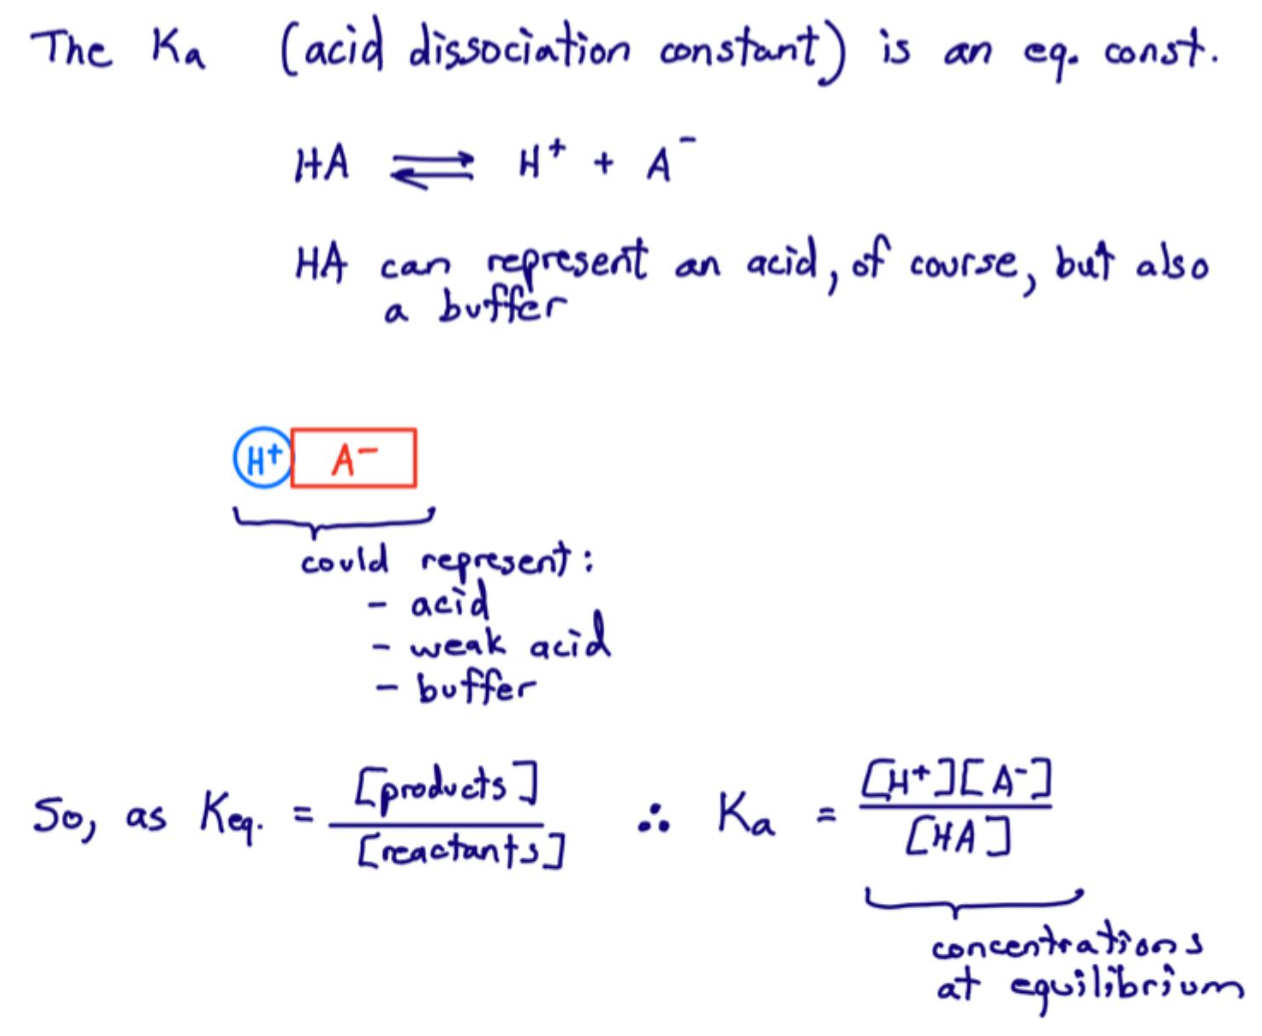 The Ka (acid dissociation constant) is an eq. const.
HA ⇌ H⁺ + A⁻
HA can represent an acid, of course, but also
a buffer
H⁺ A⁻
could represent:
- acid
- weak acid
- buffer
So, as Keq. = [products] / [reactants] ∴ Ka = [H⁺][A⁻] / [HA]
concentrations
at equilibrium